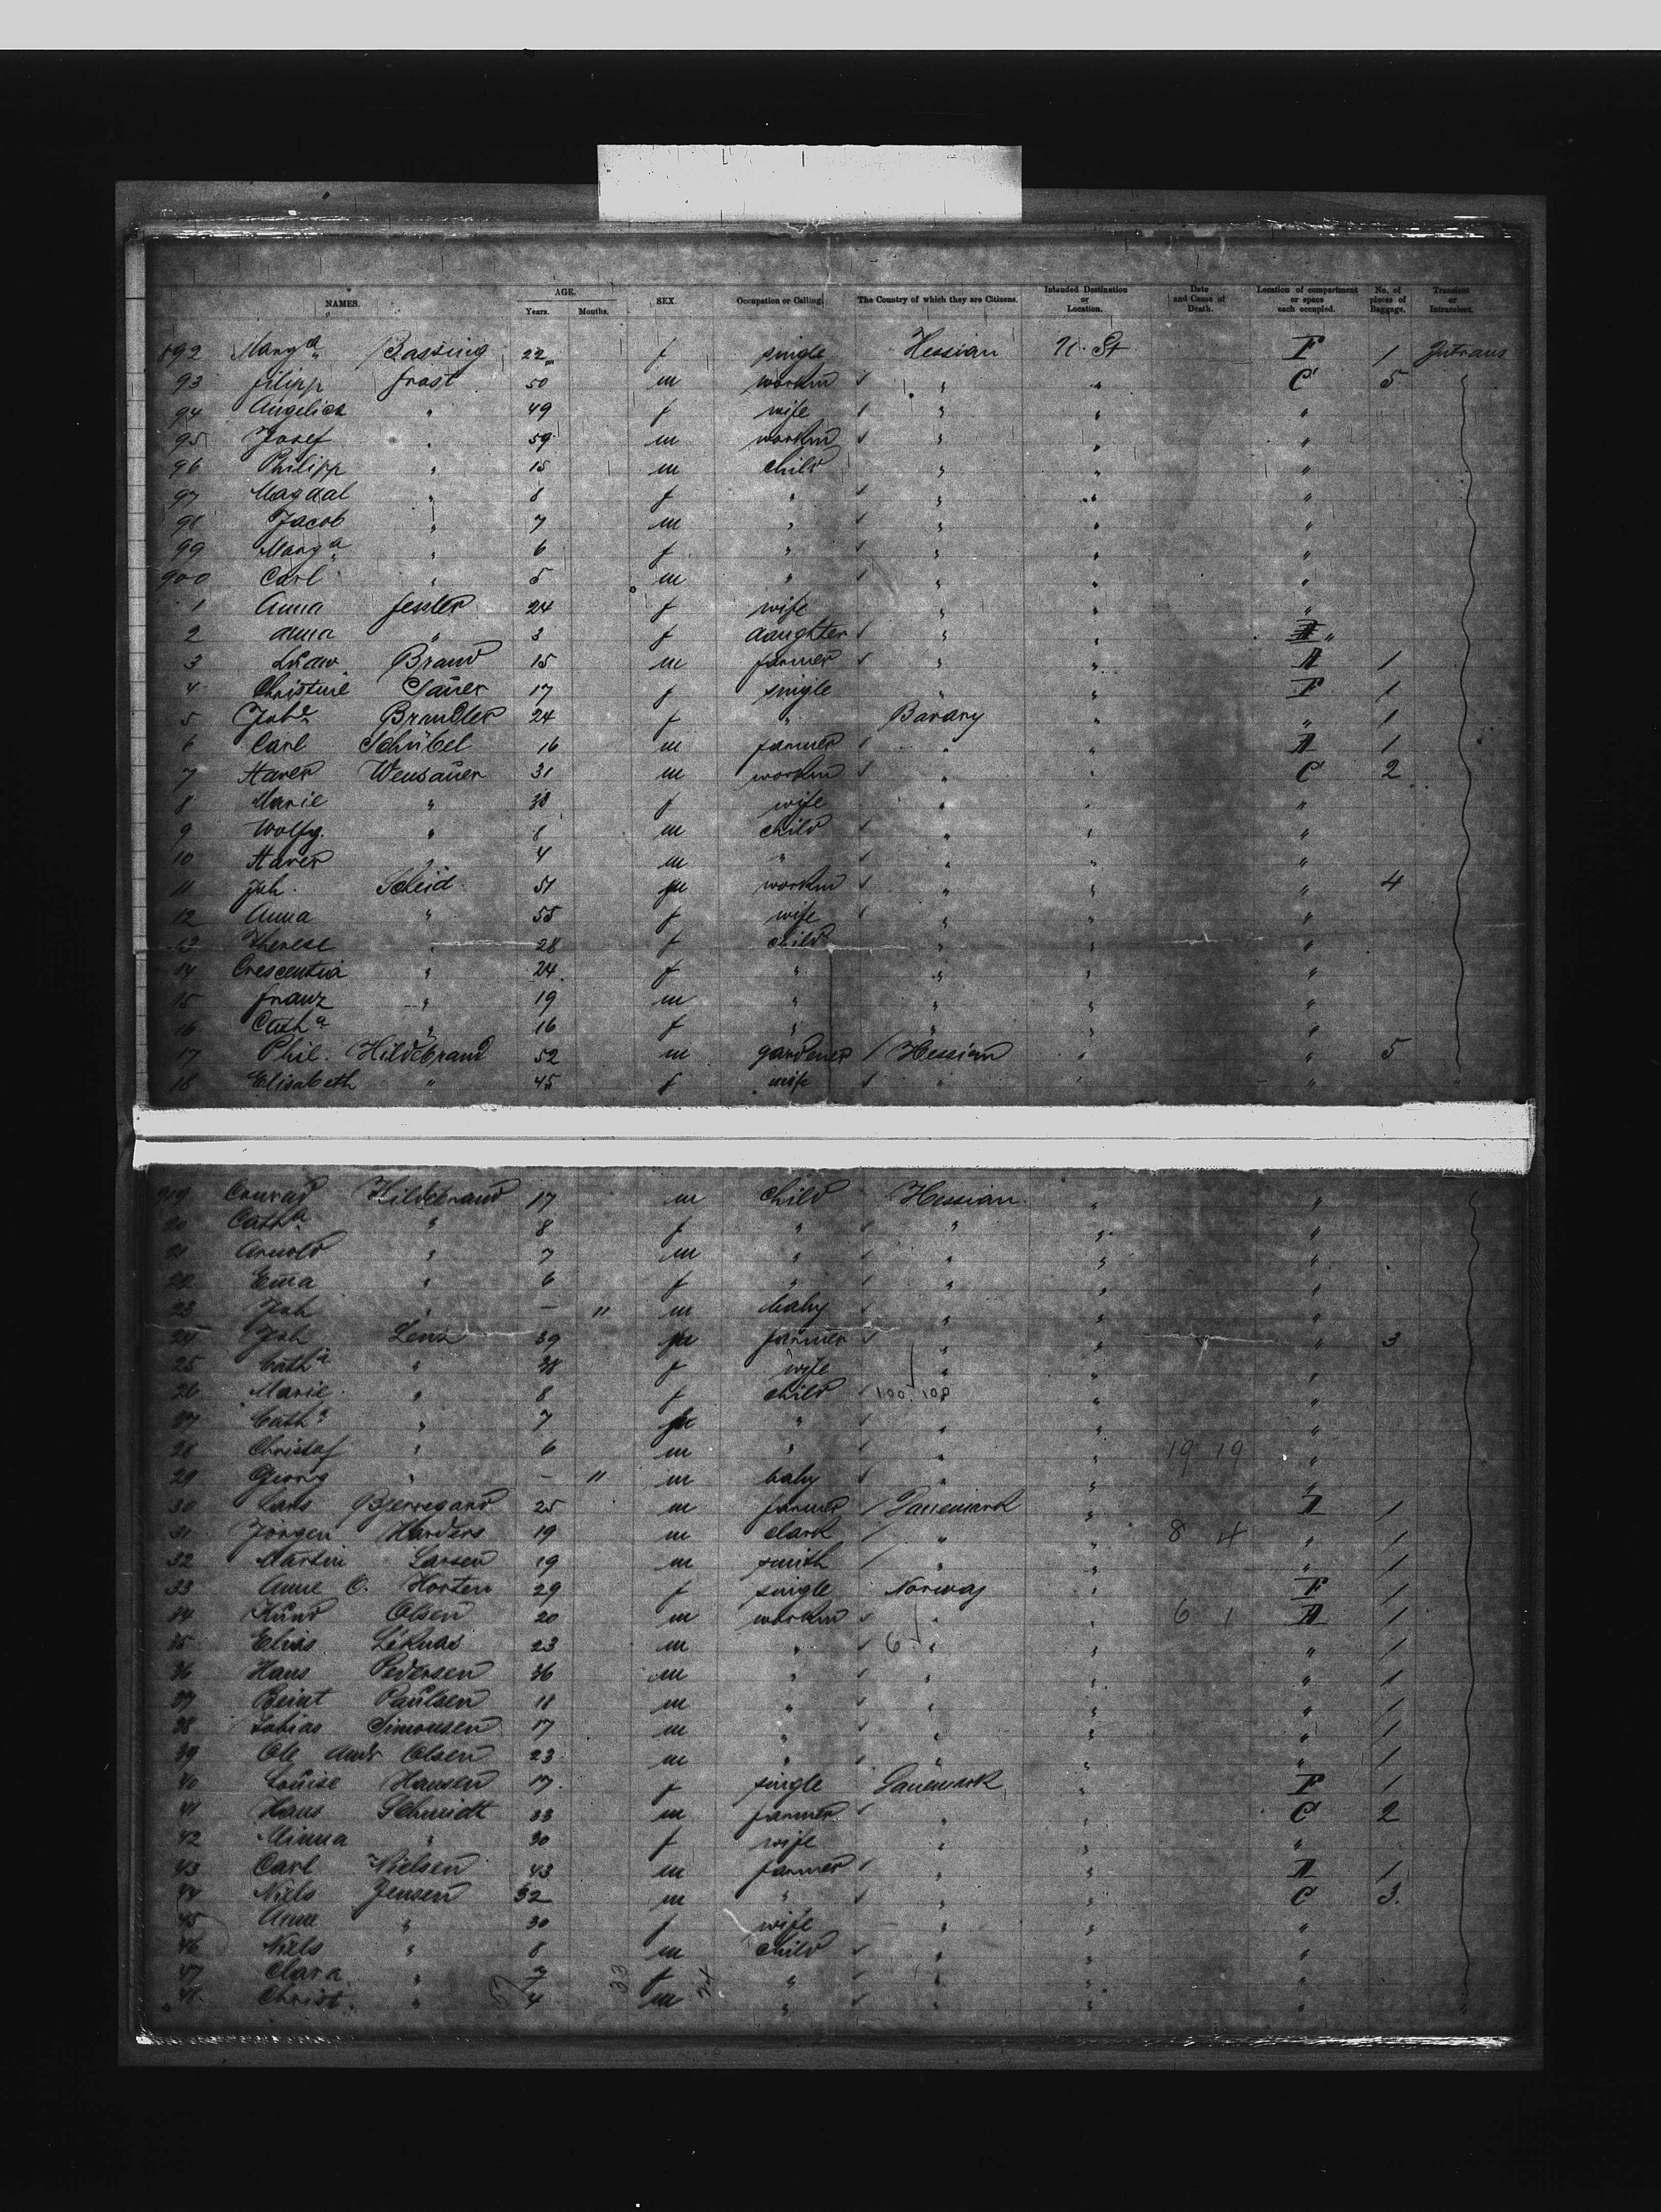 NAMES. AGE. Years. Months. SEX. Occupation or Calling. The Country of which they are Citizens. Intended Destination or Location. Date and Cause of Death. Location of compartment or space each occupied. No. of pieces of Baggage. Transient or Intransient.
892 Marga Bassing 22 f single Hessian U. St F 1 Intrans
93 filipp frost 50 m workm " " C 5
94 Angelica " 49 f wife " " "
95 Josef " 59 m workm " " "
96 Philipp " 15 m child " " "
97 Magdal " 8 f " " " "
98 Jacob " 7 m " " " "
99 Marga " 6 f " " " "
900 Carl " 5 m " " " "
1 Anna fessler 24 f wife " " "
2 Anna " 3 f daughter " " "
3 Ludw Brand 15 m farmer " " A 1
4 Christine Sauer 17 f single " " F 1
5 Brandler 24 f " Bavary " " 1
6 Carl Schübel 16 m farmer " " A 1
7 Xaver Wensauer 31 m workm " " C 2
8 Marie " 38 f wife " " "
9 Wolfg. " 8 m child " " "
10 Xaver " 4 m " " " "
11 Joh. Scheid 51 m workm " " " 4
12 Anna " 55 f wife " " "
13 Therese " 28 f child " " "
14 Crescentia " 24 f " " " "
15 franz " 19 m " " " "
16 Catha " 16 f " " " "
17 Phil. Hildebrand 52 m gardener Hessian " " 5
18 Elisabeth " 45 f wife " " "
919 Conrad Hildebrand 17 m child Hessian " "
20 Catha " 8 f " " " "
21 Arnold " 7 m " " " "
22 Ema " 6 f " " " "
23 Joh " — 11 m baby " " "
24 Joh Lenz 39 m farmer " " " 3
25 Catha " 38 f wife " " "
26 Marie " 8 f child 100 108 " "
27 Catha " 7 f " " " "
28 Christof " 6 m " " " 19 19 "
29 Georg " — 11 m baby " " "
30 Lars Bjerregard 25 m farmer Danemark " A 1
31 Jörgen Harders 19 m clark " " 8 4 " 1
32 Martin Larsen 19 m smith " " " 1
33 Anne O. Horten 29 f single Norway " F 1
34 Knud Olsen 20 m workm " " 6 1 A 1
35 Elias 23 m " 6 " " " 1
36 Hans Pedersen 36 m " " " " 1
37 Paulsen 18 m " " " " 1
38 Tobias Simonsen 17 m " " " " 1
39 Ole Andr Olsen 23 m " " " " 1
40 Louise Hansen 17 f single Danemark " F 1
41 Hans Schmidt 33 m farmer " " C 2
42 Minna " 30 f wife " " "
43 Carl Nielsen 43 m farmer " " A 1
44 Niels Jensen 32 m " " " C 3
45 Anne " 30 f wife " " "
46 Niels " 8 m child " " "
47 Clara " 7 33 f 24 " " " "
48 Christ. " 4 m " " " "